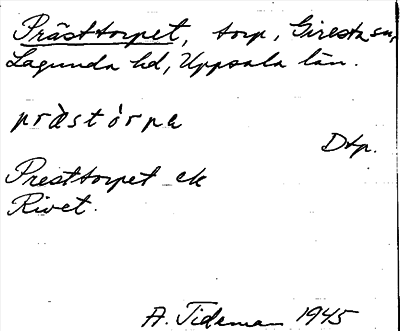 Prästtorpet, torp, Giresta sn,
Lagunda hd, Uppsala län.
prästòrpe
Dtp.
Presttorpet ek
Rivet.
A. Tideman 1945